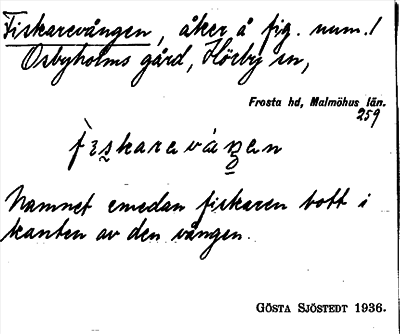 Fiskarevången, åker å fig. num. 1
Osbyholms gård, Hörby sn,
Frosta hd, Malmöhus län.
259
Namnet emedan fiskaren bott i
kanten av den vången.
GÖSTA SJÖSTEDT 1936.